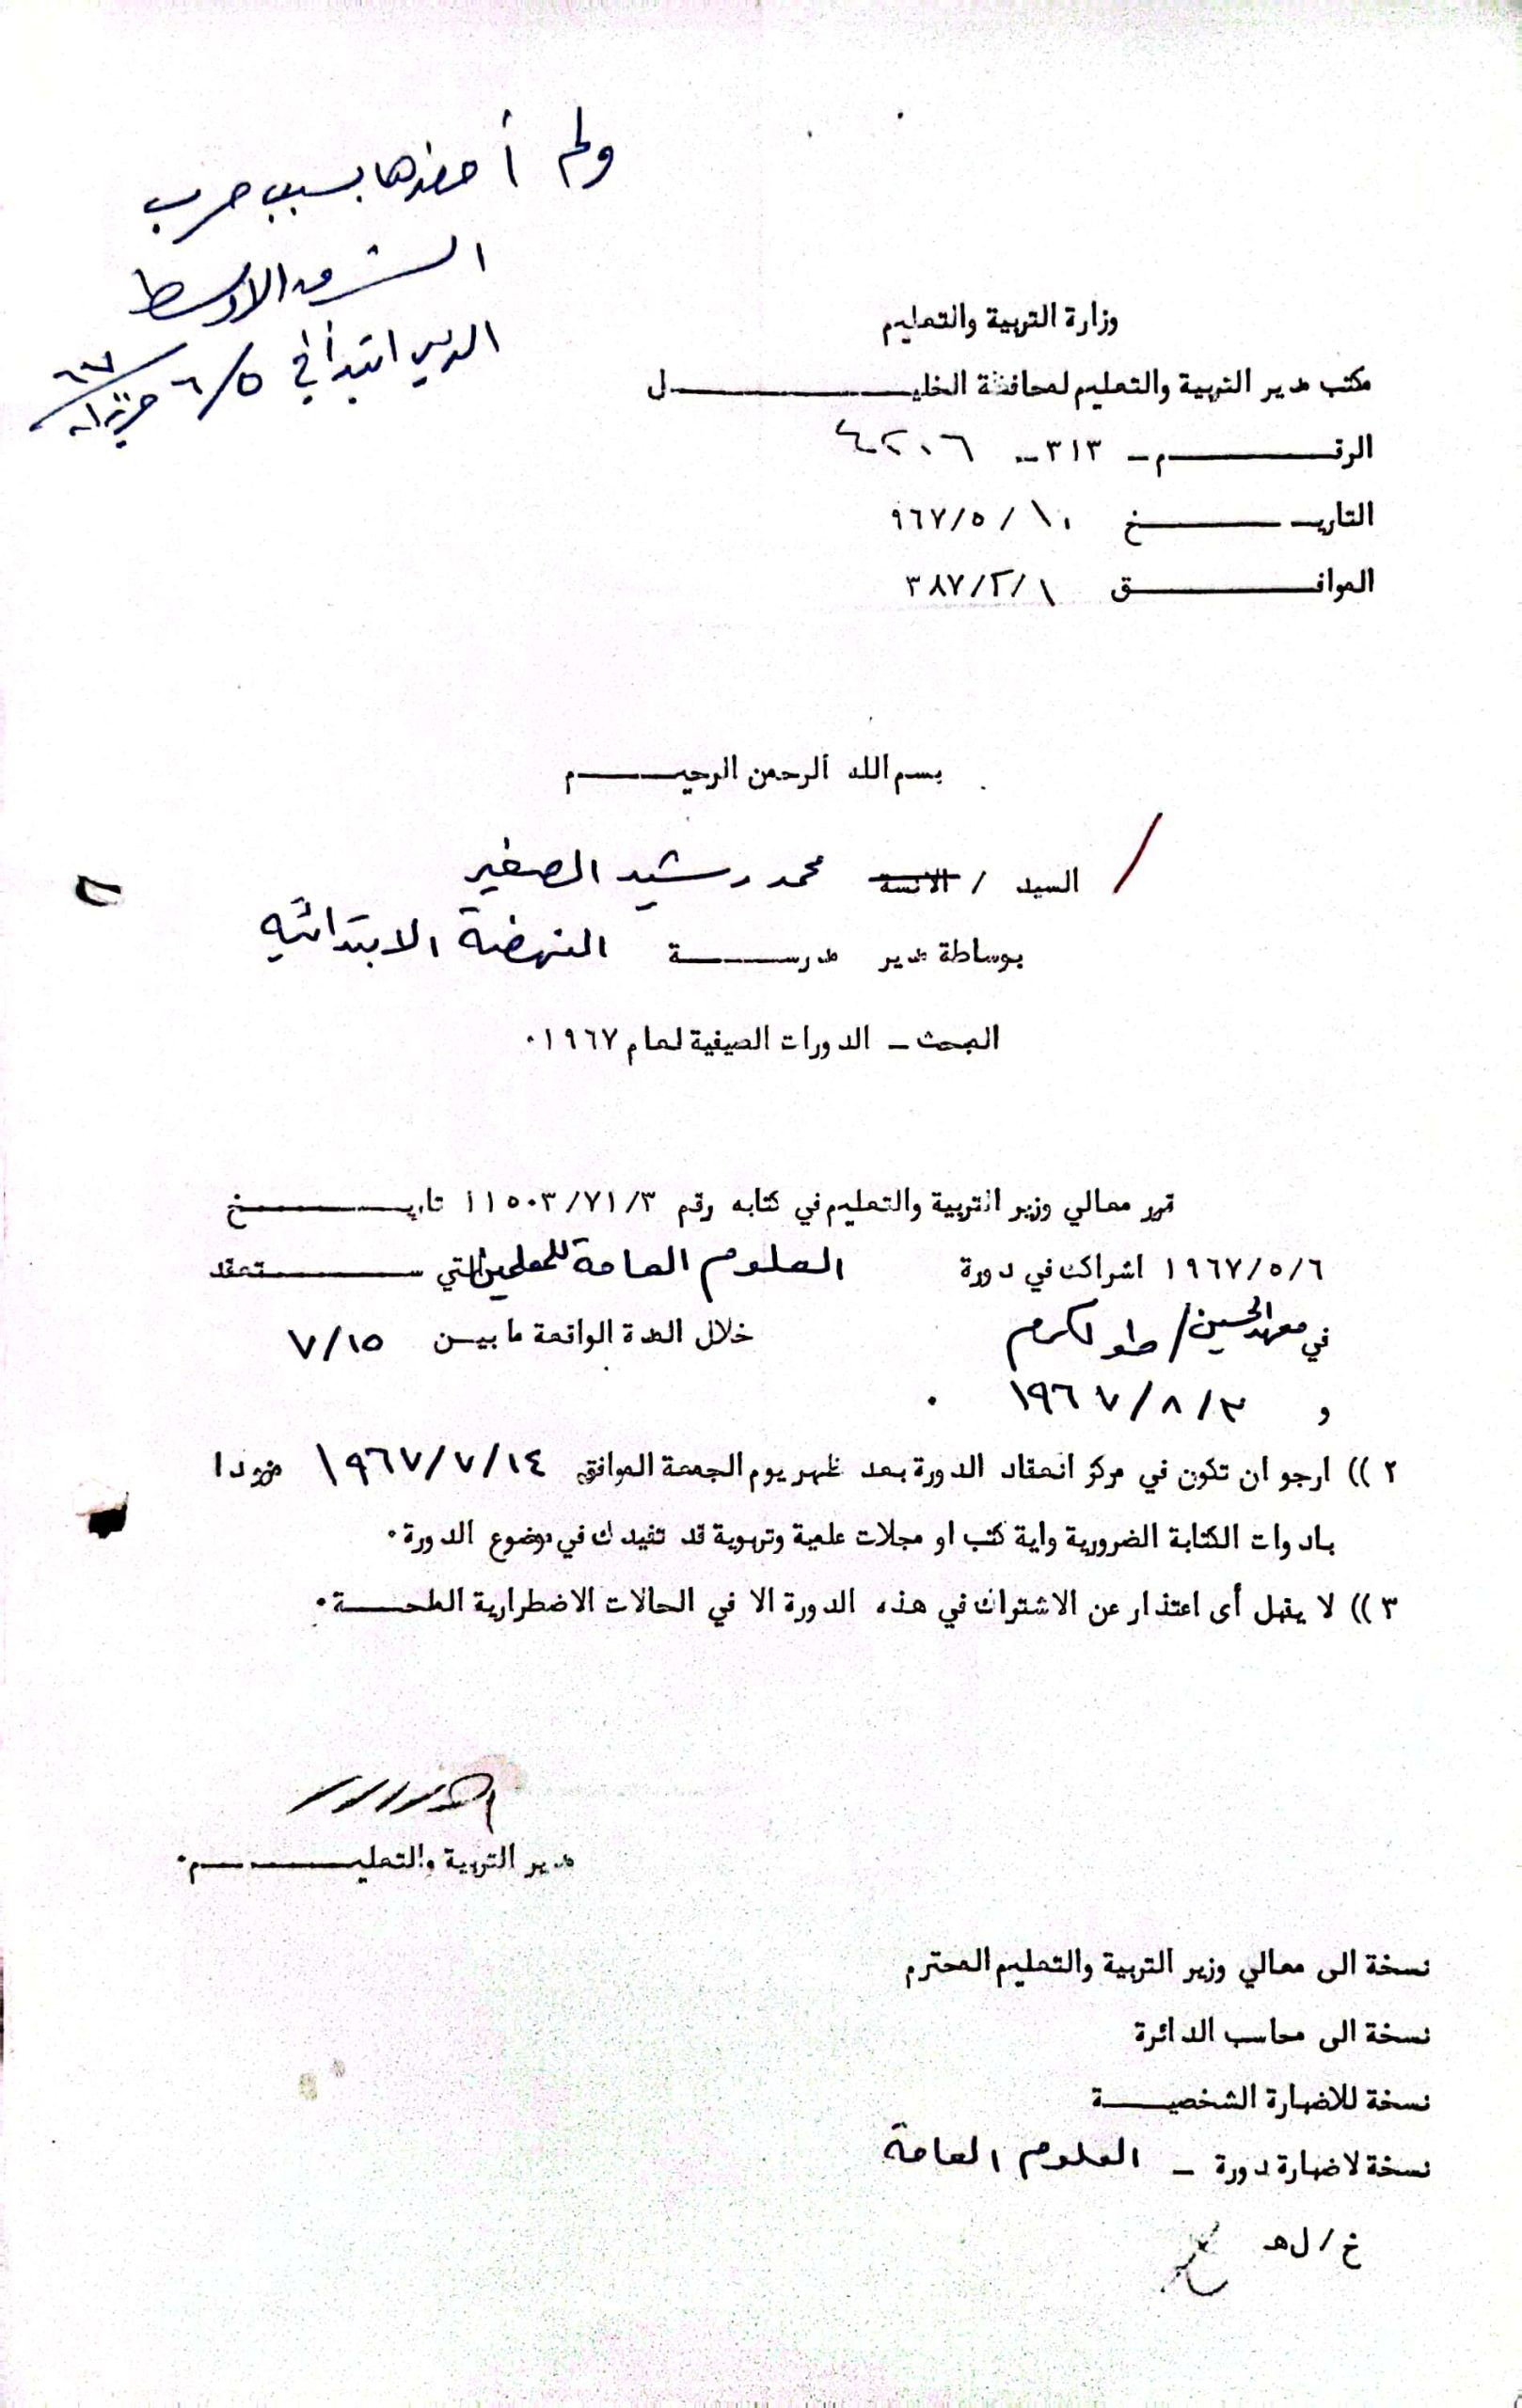 ولم أحضرها بسبب حرب
الشرق الاوسط
الذي ابتدأ في ٦/٥ حزيران ٦٧
وزارة التربية والتعليم
مكتب مدير التربية والتعليم لمحافظة الخليـــل
الرقـــم ـ ٣١٣ ـ ٤٢٠٦
التاريـــخ ١٠ / ٥ / ٩٦٧
الموافـــق ١ / ٢ / ٣٨٧
بسم الله الرحمن الرحيـــم
السيد / الانسة محمد رشيد الصغير
بوساطة مدير مدرســـة النهضة الابتدائيه
البحث ـ الدورات الصيفية لعام ١٩٦٧٠
قرر معالي وزير التربية والتعليم في كتابه رقم ١١٥٠٣/٧١/٣ تاريـــخ
١٩٦٧/٥/٦ اشراكك في دورة العلوم العامة للمعلمين التي ـــتعقد
في معهد الحسين / طولكرم خلال المدة الواقعة ما بيـن ٧/١٥
و ١٩٦٧/٨/٣ ٠
٢ )) ارجو ان تكون في مركز انعقاد الدورة بعد ظهر يوم الجمعة الموافق ١٩٦٧/٧/١٤ مزودا
بادوات الكتابة الضرورية واية كتب او مجلات علمية وتربوية قد تفيدك في موضوع الدورة ٠
٣ )) لا يقبل أى اعتذار عن الاشتراك في هذه الدورة الا في الحالات الاضطرارية الملحـــة ٠
مدير التربية والتعليـــم٠
نسخة الى معالي وزير التربية والتعليم المحترم
نسخة الى محاسب الدائرة
نسخة للاضبارة الشخصيـــة
نسخة لاضبارة دورة ـ العلوم العامة
خ / ل هـ